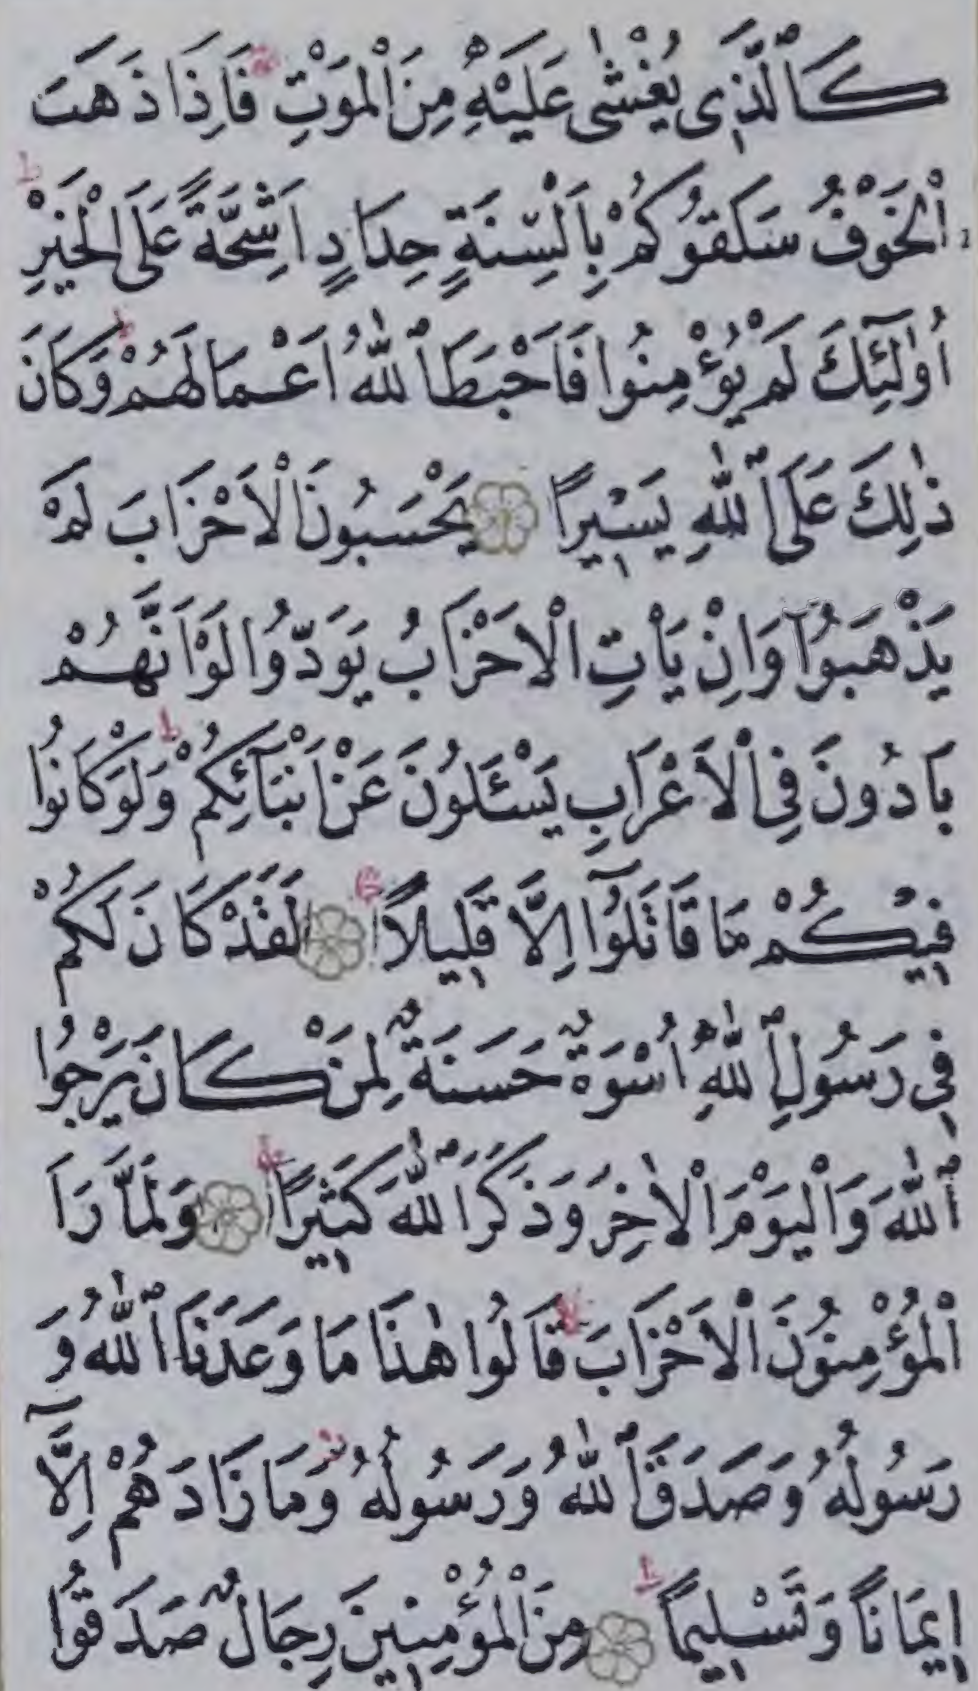 كَالَّذِى يُغْشٰى عَلَيْهِ مِنَ الْمَوْتِ ۚ فَاِذَا ذَهَبَ
الْخَوْفُ سَلَقُوكُمْ بِاَلْسِنَةٍ حِدَادٍ اَشِحَّةً عَلَى الْخَيْرِ ۜ
اُو۬لٰٓئِكَ لَمْ يُؤْمِنُوا فَاَحْبَطَ اللّٰهُ اَعْمَالَهُمْ ۜ وَكَانَ
ذٰلِكَ عَلَى اللّٰهِ يَسٖيرًا يَحْسَبُونَ الْاَحْزَابَ لَمْ
يَذْهَبُوآ وَاِنْ يَاْتِ الْاَحْزَابُ يَوَدُّوا لَوْ اَنَّهُمْ
بَادُونَ فِى الْاَعْرَابِ يَسْئَلُونَ عَنْ اَنْبَآئِكُمْ ۜ وَلَوْ كَانُوا
فٖيكُمْ مَا قَاتَلُوآ اِلَّا قَلٖيلًا لَقَدْ كَانَ لَكُمْ
فٖى رَسُولِ اللّٰهِ اُسْوَةٌ حَسَنَةٌ لِمَنْ كَانَ يَرْجُوا
اللّٰهَ وَالْيَوْمَ الْاٰخِرَ وَذَكَرَ اللّٰهَ كَثٖيرًا وَلَمَّا رَاَ
الْمُؤْمِنُونَ الْاَحْزَابَ ۙ قَالُوا هٰذَا مَا وَعَدَنَا اللّٰهُ وَ
رَسُولُهُ وَصَدَقَ اللّٰهُ وَرَسُولُهُ ۘ وَمَا زَادَهُمْ اِلَّآ
اٖيمَانًا وَتَسْلٖيمًا ۜ مِنَ الْمُؤْمِنٖينَ رِجَالٌ صَدَقُوا